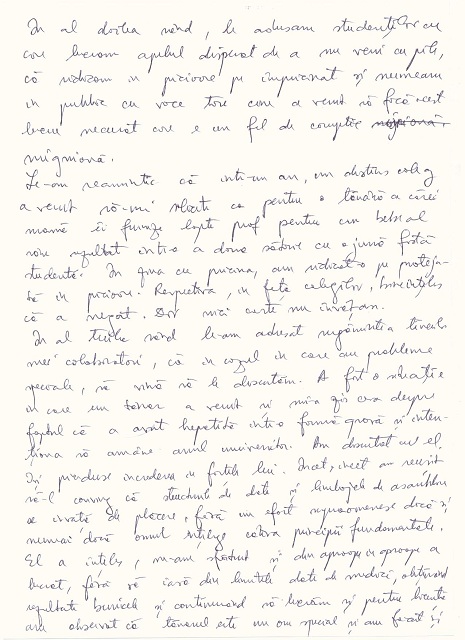 In al doilea rând, le adresam studenților cu
care lucram apelul disperat de a nu veni cu pile,
că ridicam în picioare pe împricinat și numeam
în public cu voce tare care a venit să facă acest
lucru necurat care e un fel de corupție
mignionă.
Le-am reamintit că într-un an, un distins coleg
a venit să-mi ca pentru o tânără a cărei
mamă îi furniza lapte prof pentru un bebe al
rezultat într-o a doua căsătorie cu o jună fostă
studentă. În gura cu pricina, am ridicat-o pe proteja-
tă în picioare. Respectiva, în fața colegilor, bineînțeles
că a negat. Dar nici carte nu învățau.
În al treilea rând le-am adresat rugămintea tinerilor
mei colaboratori, că în cazul în care au probleme
speciale, să vină să le discutăm. A fost o situație
în care un tânăr a venit și mi-a zis ceva despre
faptul că a avut hepatită într-o formă gravă și inten-
ționa să amâne anul universitar. Am discutat cu el.
Își pierduse încrederea în forțele lui. Încet, încet am reușit
să-l conving că structurile de date și limbajele de asamblare
se învață de plăcere, fără un efort dacă și
numai dacă omul înțelege câteva principii fundamentale.
El a înțeles, m-am străduit și din aproape în aproape a
lucrat, fără să iasă din limitele date de medici, obținând
rezultate bunicele și continuând să lucrăm și pentru licență
am observat că tânărul este un om special și am făcut și